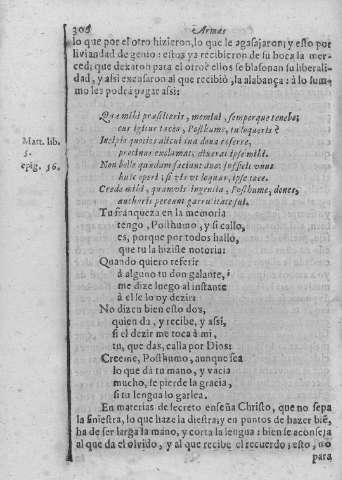 306 Armas
lo que por el otro hizieron, lo que le agasajaron; y esto por
liviandad de genio: estos ya recibieron de su boca la mer-
ced; que dexaron para el otro? ellos se blasonan su liberali-
dad, y assi escusaron al que recibiò, la alabança: à lo sum-
mo les podrà pagar assi:
Quæ mihi præstiteris, memini, semperque tenebo;
cur igitur taceo, Posthume, tu loqueris?
Incipio quoties alicui tua dona referre,
protinus exclamat; dixerat ipse mihi.
Mart. lib.
5.
epig. 36.
Non bellè quædam faciunt duo: sufficit unus
huic operi; si vis ut loquar, ipse tace.
Crede mihi, quamvis ingentia, Posthume, dones,
authoris pereunt garrulitate sui.
Tu franqueza en la memoria
tengo, Posthumo, y si callo,
es, porque por todos hallo,
que tu la hiziste notoria:
Quando quiero referir
à alguno tu don galante,
me dize luego al instante
à èl se lo oy dezir:
No dizen bien esto dos,
quien da, y recibe, y assi,
si el dezir me toca à mi,
tu, que das, calla por Dios:
Creeme, Posthumo, aunque sea
lo que dà tu mano, y vacia
mucho, se pierde la gracia,
si tu lengua lo garlea.
En materias de secreto enseña Christo, que no sepa
la siniestra, lo que haze la diestra; y en puntos de hazer biẽ,
ha de ser larga la mano, y corta la lengua: bien se aconseja
al que da el olvido, y al que recibe el recuerdo; esto, no
para